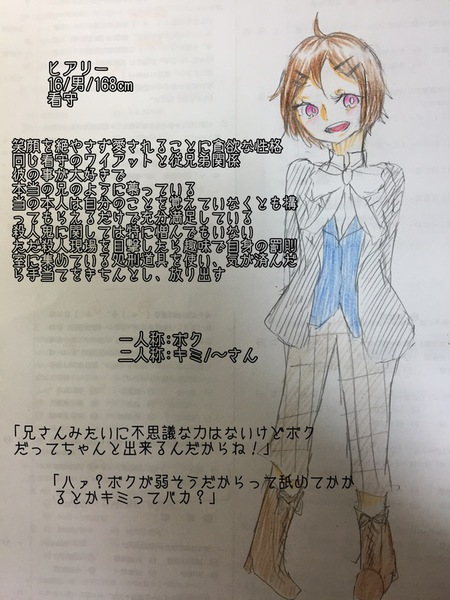 ヒアリー
16/男/168cm
看守
笑顔を絶やさず愛されることに貪欲な性格
同じ看守のワイアットと従兄弟関係
彼の事が大好きで
本当の兄のように慕っている
当の本人は自分のことを覚えていなくとも構
ってもらえるだけで充分満足している
殺人鬼に関しては特に憎んでもいない
ただ殺人現場を目撃したら趣味で自身の罰則
室に集めている処刑道具を使い、気が済んだ
ら手当てをきちんとし、放り出す
一人称:ボク
二人称:キミ/〜さん
「兄さんみたいに不思議な力はないけどボク
だってちゃんと出来るんだからね!」
「ハァ?ボクが弱そうだからって舐めてかか
るとかキミってバカ?」